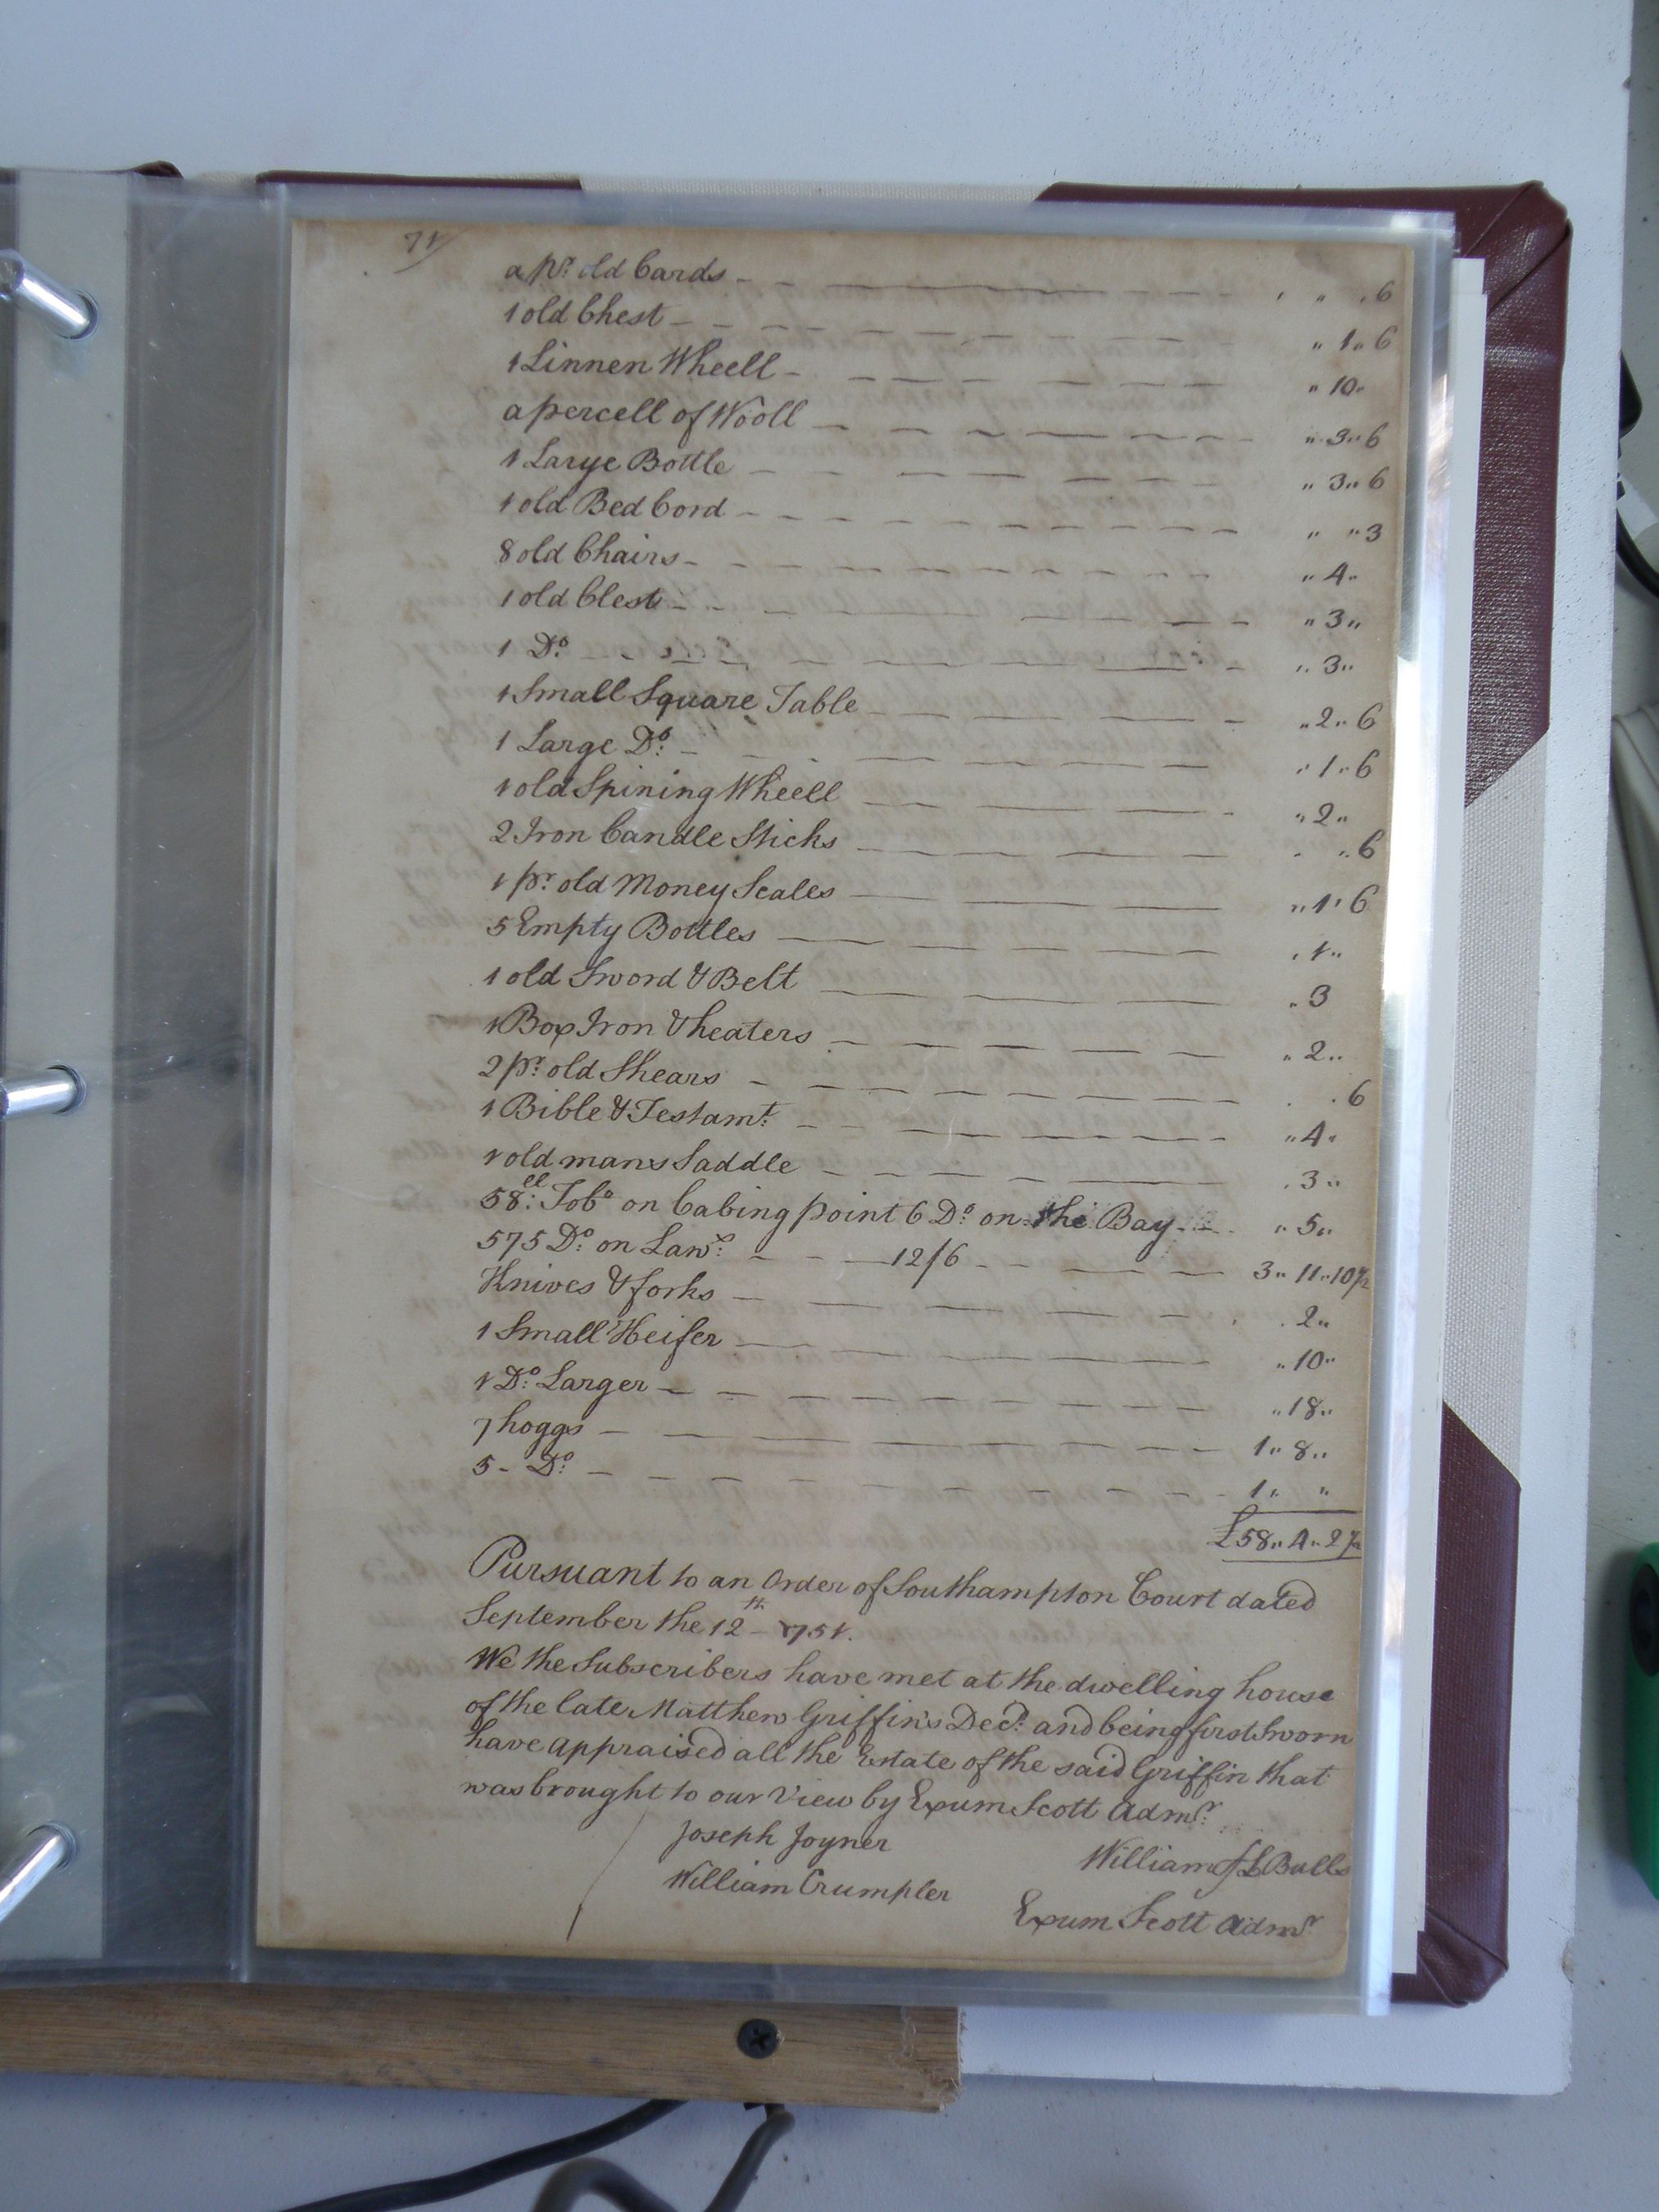 71
a pr. old Cards - - - " " 6
1 old Chest - - - " 1 " 6
1 Linnen Wheell - - - " 10 "
a percell of Wooll - - - " 3 " 6
1 Large Bottle - - - " 3 " 6
1 old Bed Cord - - - " " 3
8 old Chairs - - - " 4 "
1 old Clest - - - " 3 "
1 Do. - - - " 3 "
1 Small Square Table - - - " 2 " 6
1 Large Do. - - - " 1 " 6
1 old Spining Wheell - - - " 2 "
2 Iron Candle Sticks - - - " " 6
1 pr. old Money Scales - - - " 1 " 6
5 Empty Bottles - - - " 1 "
1 old Sword & Belt - - - " 3
1 Box Iron & heaters - - - " 2 "
2 pr. old Shears - - - " " 6
1 Bible & Testamt. - - - " 4 "
1 old mans Saddle - - - " 3 "
58ll. Tobo on Cabing point 6 Do. on the Bay - - - " 5 "
575 Do. on Lawr. - - - 12/6 - - - 3 " 11 " 10 1/2
Knives & forks - - - " 2 "
1 Small Heifer - - - " 10 "
1 Do. Larger - - - " 18 "
7 hoggs - - - 1 " 8 "
5 - Do. - - - 1 " "
£58 " 4 " 2 1/2
Pursuant to an Order of Southampton Court dated
September the 12th - 1751.
We the Subscribers have met at the dwelling house
of the late Matthew Griffin's Decd. and being first Sworn
have appraised all the Estate of the said Griffin that
was brought to our View by Exum Scott Admr.
Joseph Joyner
William Bulls
William Crumpler
Exum Scott Admr